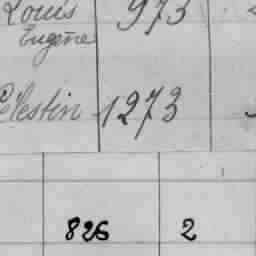 Louis 973
Eugène
Célestin 1273
826 2